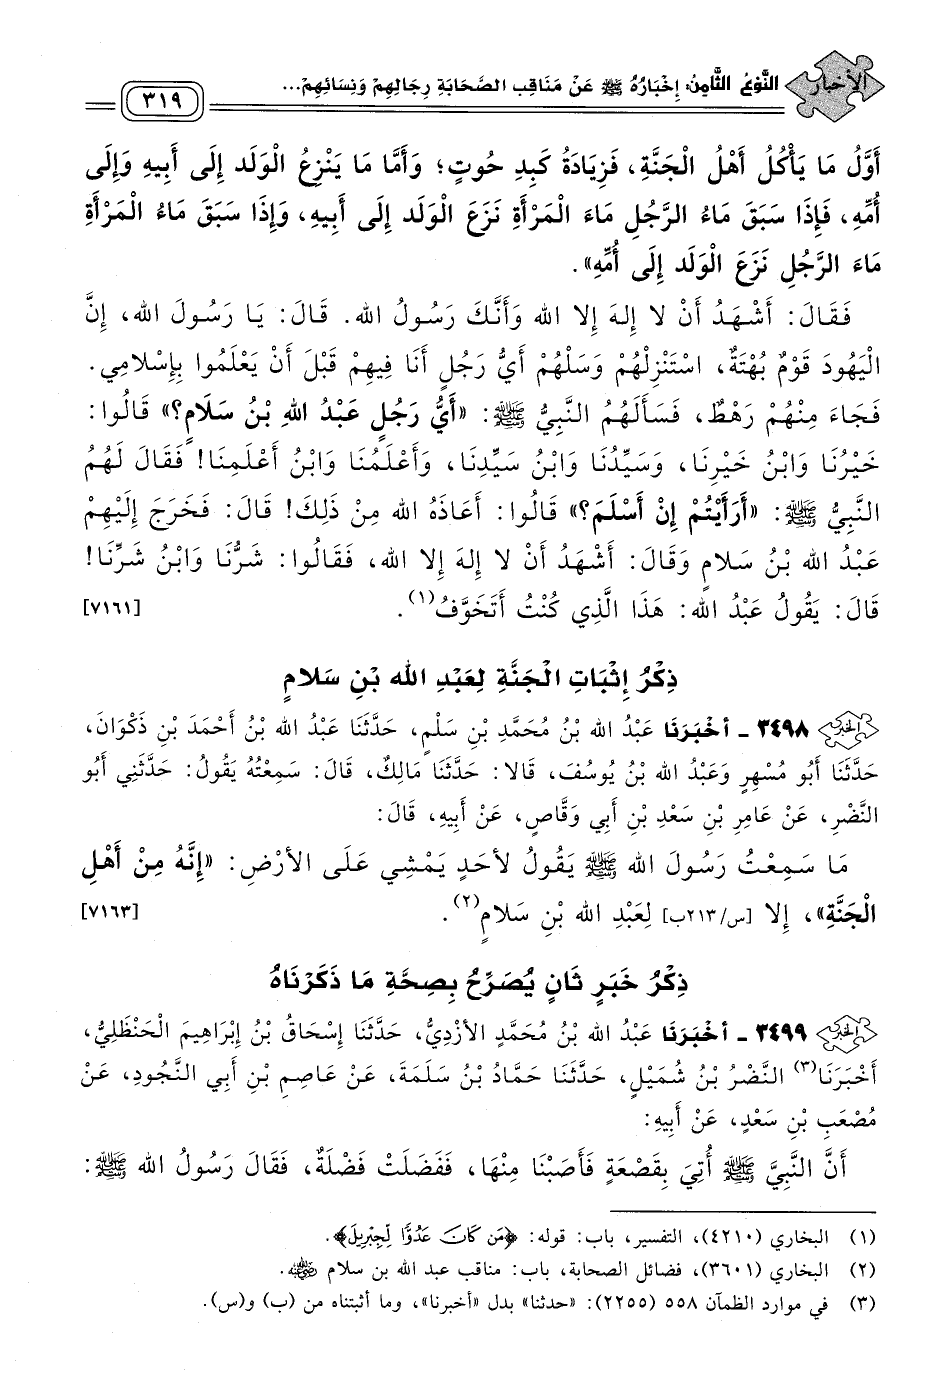 الأخبار
النَّوْعُ الثَّامِنُ: إِخْبَارُهُ ﷺ عَنْ مَنَاقِبِ الصَّحَابَةِ رِجَالِهِمْ وَنِسَائِهِمْ...
٣١٩
أَوَّلُ مَا يَأْكُلُ أَهْلُ الْجَنَّةِ، فَزِيَادَةُ كَبِدِ حُوتٍ؛ وَأَمَّا مَا يَنْزِعُ الْوَلَد إِلَى أَبِيهِ وَإِلَى
أُمِّهِ، فَإِذَا سَبَقَ مَاءُ الرَّجُلِ مَاءَ الْمَرْأَةِ نَزَعَ الْوَلَد إِلَى أَبِيهِ، وَإِذَا سَبَقَ مَاءُ الْمَرْأَةِ
مَاءَ الرَّجُلِ نَزَعَ الْوَلَد إِلَى أُمِّهِ».
فَقَالَ: أَشْهَدُ أَنْ لا إِلهَ إِلا الله وَأَنَّكَ رَسُولُ الله. قَالَ: يَا رَسُولَ الله، إِنَّ
الْيَهُودَ قَوْمٌ بُهْتَةٌ، اسْتَنْزِلْهُمْ وَسَلْهُمْ أَيُّ رَجُلٍ أَنَا فِيهِمْ قَبْلَ أَنْ يَعْلَمُوا بِإِسْلامِي.
فَجَاءَ مِنْهُمْ رَهْطٌ، فَسَأَلَهُمُ النَّبِيُّ ﷺ: «أَيُّ رَجُلٍ عَبْدُ اللهِ بْنُ سَلَامٍ؟» قَالُوا:
خَيْرُنَا وَابْنُ خَيْرِنَا، وَسَيِّدُنَا وَابْنُ سَيِّدِنَا، وَأَعْلَمُنَا وَابْنُ أَعْلَمِنَا! فَقَالَ لَهُمُ
النَّبِيُّ ﷺ: «أَرَأَيْتُمْ إِنْ أَسْلَمَ؟» قَالُوا: أَعَاذَهُ الله مِنْ ذَلِكَ! قَالَ: فَخَرَجَ إِلَيْهِمْ
عَبْدُ الله بْنُ سَلامٍ وَقَالَ: أَشْهَدُ أَنْ لا إِلهَ إِلا الله، فَقَالُوا: شَرُّنَا وَابْنُ شَرِّنَا!
قَالَ: يَقُولُ عَبْدُ الله: هَذَا الَّذِي كُنْتُ أَتَخَوَّفُ(١). [٧١٦١]
ذِكْرُ إِثْبَاتِ الْجَنَّةِ لِعَبْدِ الله بْنِ سَلامٍ
٣٤٩٨ ـ أخْبَرَنَا عَبْدُ الله بْنُ مُحَمَّدِ بْنِ سَلْمٍ، حَدَّثَنَا عَبْدُ الله بْنُ أَحْمَدَ بْنِ ذَكْوَانَ،
حَدَّثَنَا أَبُو مُسْهِرٍ وَعَبْدُ الله بْنُ يُوسُفَ، قَالا: حَدَّثَنَا مَالِكٌ، قَالَ: سَمِعْتُهُ يَقُولُ: حَدَّثَنِي أَبُو
النَّضْرِ، عَنْ عَامِرِ بْنِ سَعْدِ بْنِ أَبِي وَقَّاصٍ، عَنْ أَبِيهِ، قَالَ:
مَا سَمِعْتُ رَسُولَ الله ﷺ يَقُولُ لأحَدٍ يَمْشِي عَلَى الأرْضِ: «إِنَّهُ مِنْ أَهْلِ
الْجَنَّةِ»، إِلا [س/٢١٣ب] لِعَبْدِ الله بْنِ سَلامٍ(٢). [٧١٦٣]
ذِكْرُ خَبَرٍ ثَانٍ يُصَرِّحُ بِصِحَّةِ مَا ذَكَرْنَاهُ
٣٤٩٩ ـ أخْبَرَنَا عَبْدُ الله بْنُ مُحَمَّدٍ الأزْدِيُّ، حَدَّثَنَا إِسْحَاقُ بْنُ إِبْرَاهِيمَ الْحَنْظَلِيُّ،
أَخْبَرَنَا(٣) النَّضْرُ بْنُ شُمَيْلٍ، حَدَّثَنَا حَمَّادُ بْنُ سَلَمَةَ، عَنْ عَاصِمِ بْنِ أَبِي النَّجُودِ، عَنْ
مُصْعَبِ بْنِ سَعْدٍ، عَنْ أَبِيهِ:
أَنَّ النَّبِيَّ ﷺ أُتِيَ بِقَصْعَةٍ فَأَصَبْنَا مِنْهَا، فَفَضَلَتْ فَضْلَةٌ، فَقَالَ رَسُولُ الله ﷺ:
(١) البخاري (٤٢١٠)، التفسير، باب: قوله: ﴿مَن كَانَ عَدُوًّا لِّجِبْرِيلَ﴾.
(٢) البخاري (٣٦٠١)، فضائل الصحابة، باب: مناقب عبد الله بن سلام رضي الله عنه.
(٣) في موارد الظمآن ٥٥٨ (٢٢٥٥): «حدثنا» بدل «أخبرنا»، وما أثبتناه من (ب) و(س).